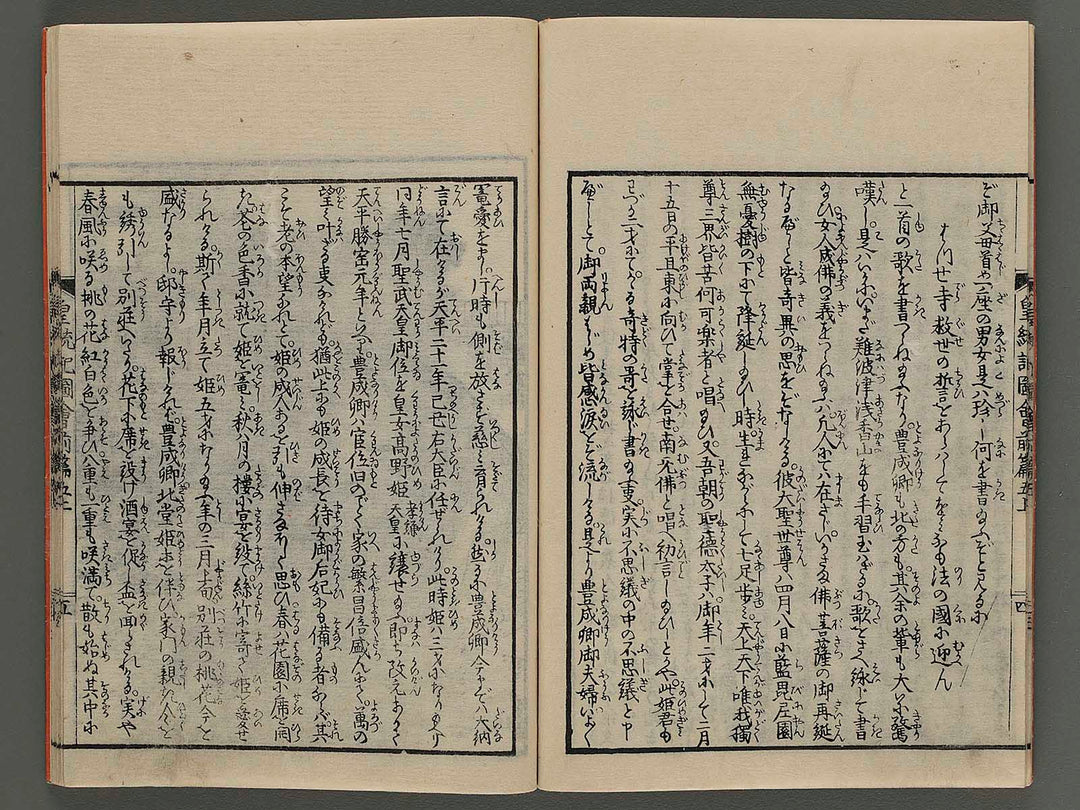 ぞ御父母首め一座の男女是ハ珍し何を書給ふぞと見るに
はつせ寺救世の誓をあらハして女も法の國に迎へん
と一首の歌を書つらね給ふ豊成卿も北の方も其余の輩も大いに驚
嘆し是ハいまだ難波津浅香山をも手習玉ハざるに歌をさへ詠じて書
給ひ女人成佛の義をつらね給ふハ凡人にてハ在さじいかさま佛菩薩の御再誕
なるべしと皆奇異の思をなしける彼大聖世尊ハ四月八日に藍毘尼園
無憂樹の下にて降誕し給ひ時生まながらにして七足歩ミ天上天下唯我獨
尊三界皆苦何可楽者と唱給ひ又吾朝の聖徳太子ハ御年二才にして二月
十五日の平旦東に向ひて掌を合せ南无佛と唱へ初給ひしとかや此姫君も
わづか三才にてかゝる奇特の哥を詠じ書給ふ事実に不思議の中の不思議と申
べしとて御両親はじめ皆感涙をぞ流しける是より豊成卿御夫婦いよ〳〵
寵愛をまし片時も側を放さず慈ミ育られける然に豊成卿今までハ大納
言にて在けるが天平二十一年己丑右大臣に任ぜられ此時姫ハ三才になり給へり
同年七月聖武天皇御位を皇女高野姫孝謙天皇に譲せ給ひ即ち改元ありて
天平勝宝元年といふ豊成卿ハ官位旧のごとく家の繁昌倍盛んにして萬の
望ミ叶ざる事なけれども猶此上にも姫の成長を待女御后妃にも備る者ならバ其
こそ老の本望なれとて姫の成人あるを引も伸さまほしく思ひ春ハ花園に席を開
き花の色香に就て姫を寵し秋ハ月の樓に宴を設て絲竹に寄て姫を愛せ
られける斯て年月立て姫五才になり給ふ年の三月上旬別荘の桃花今を
盛なるよし邸守より報じければ豊成卿北堂姫君を伴ひ家門の親き人々を
も誘引して別荘にいたり花下に席を設け酒宴を促し盃を回されける実や
春風に咲る桃の花紅白色を争ひ八重も一重も咲満て散も始ぬ其中に